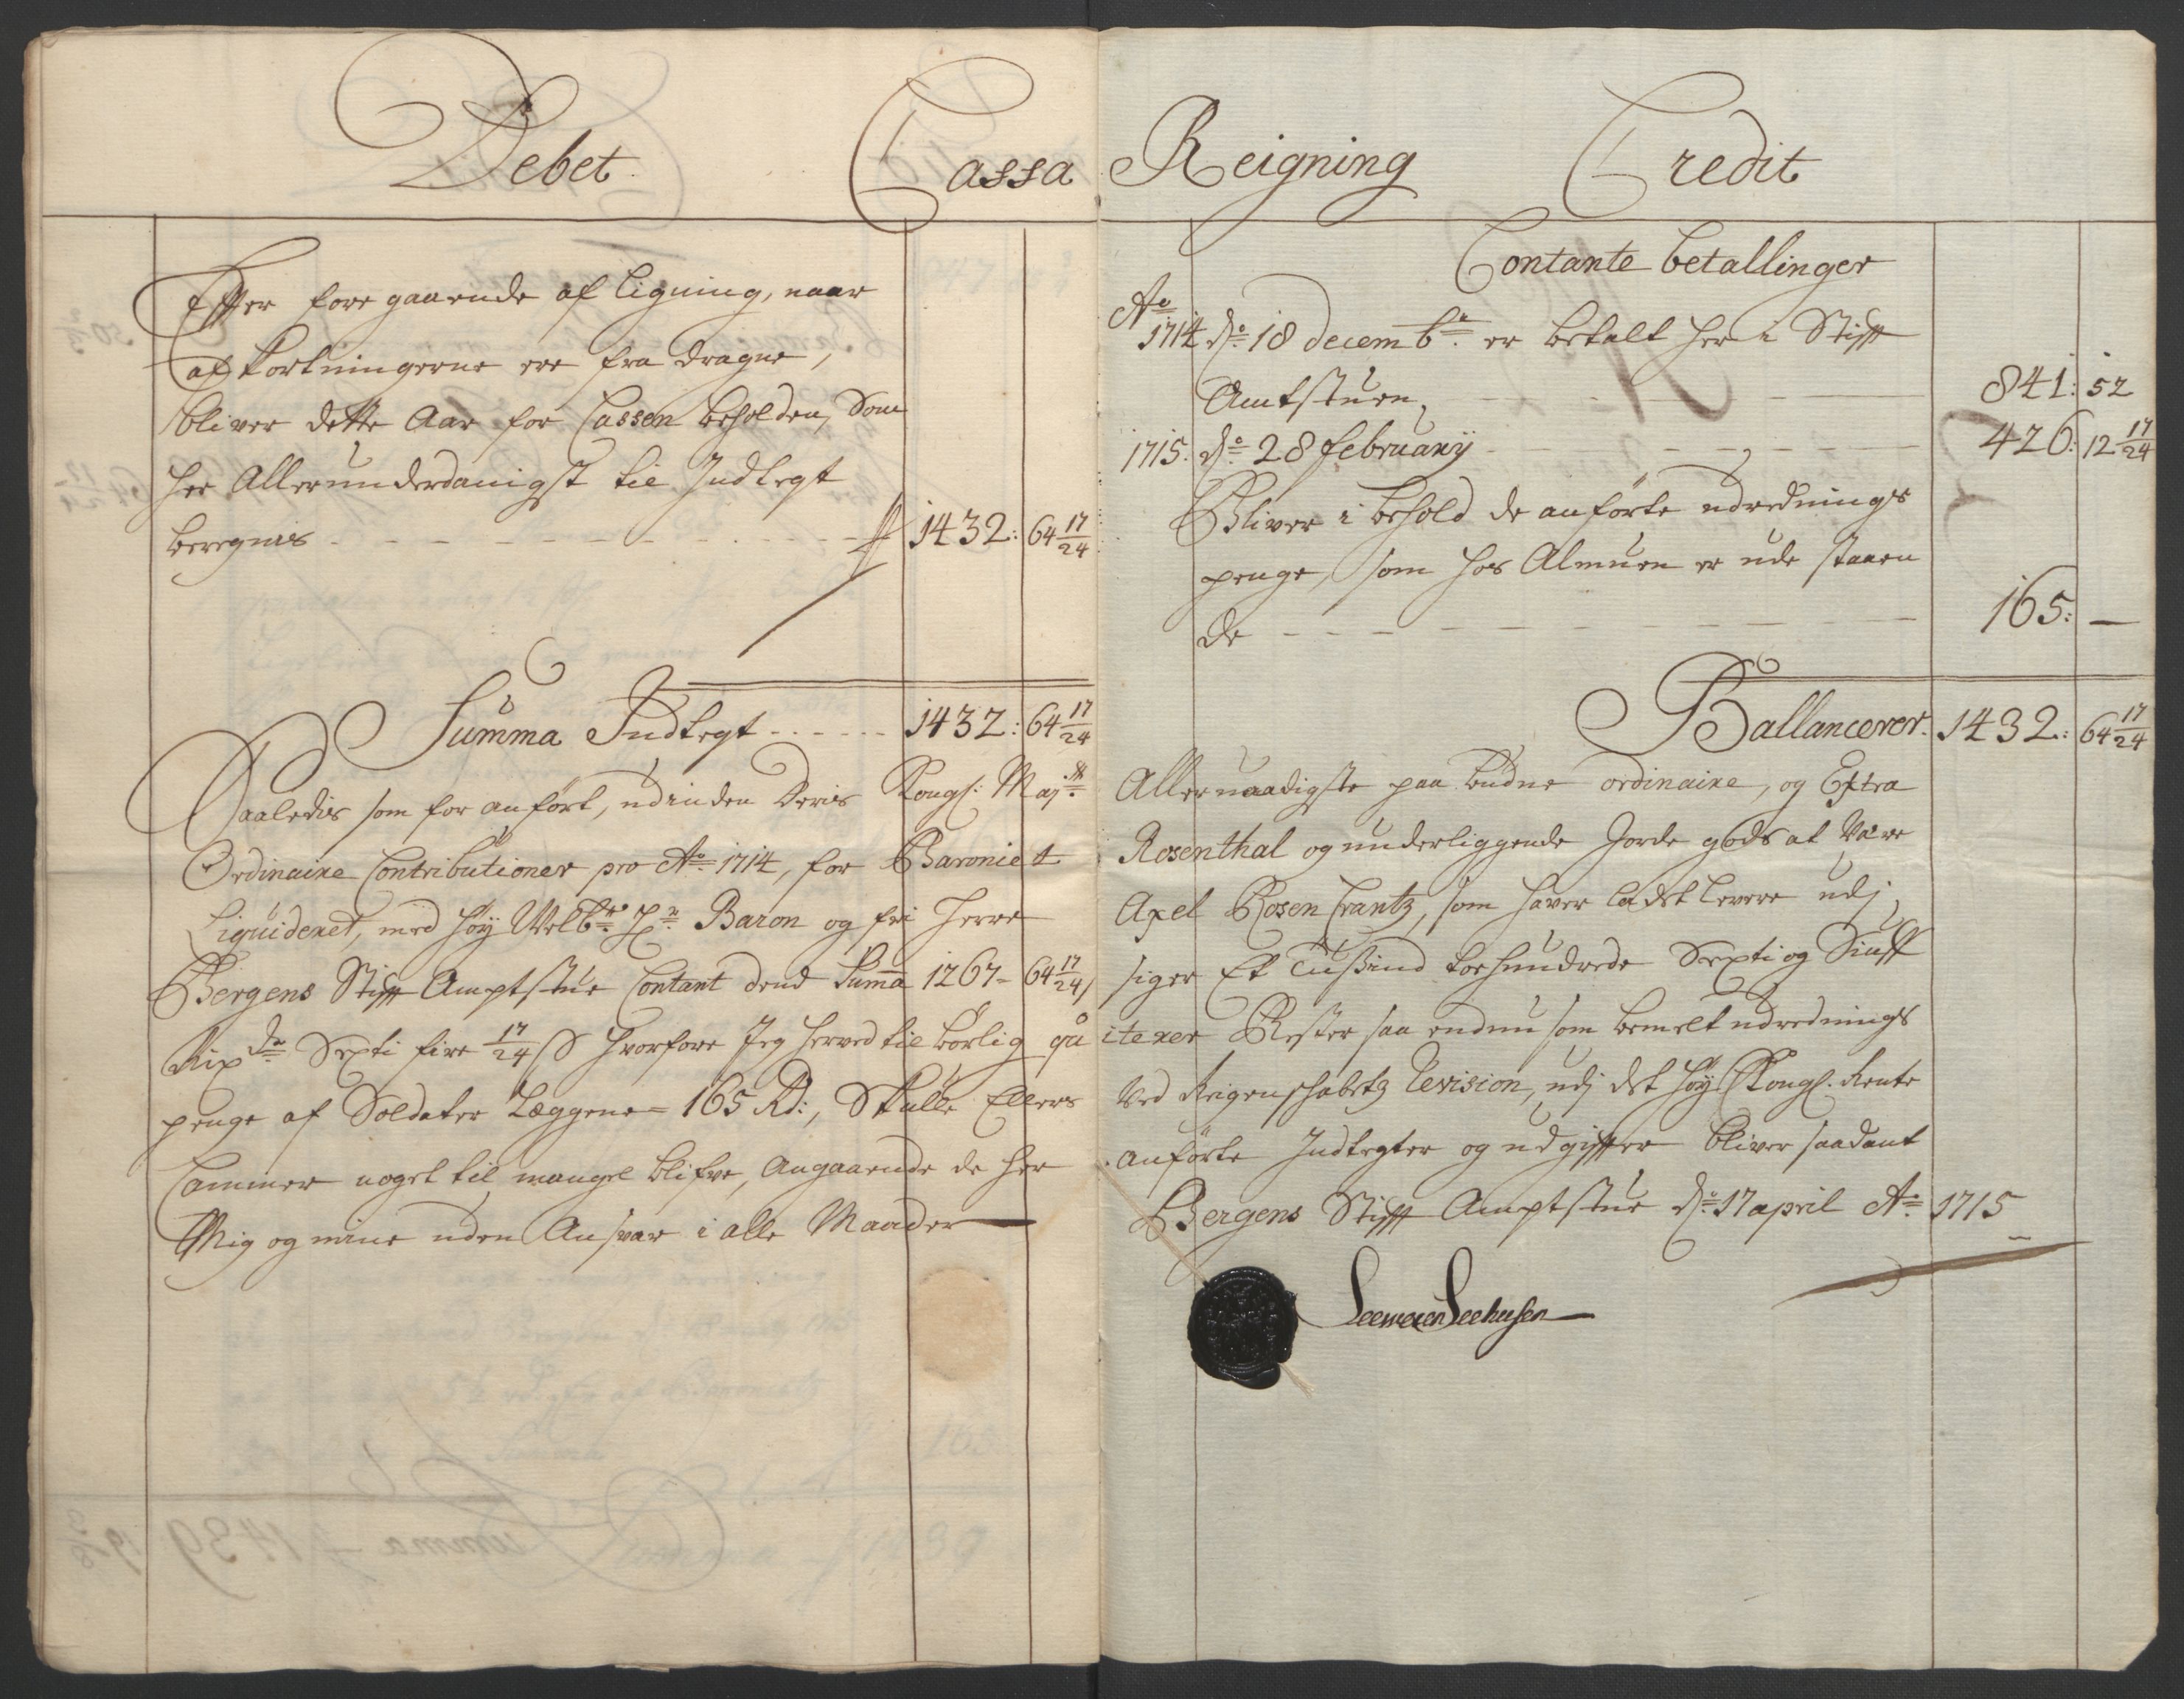 Debet Cassa
Efter foregaaende af ligning, naar
afkortningerne ere fra dragne,
bliver dette Aar for Cassen beholden, Som
her Allerunderdanigst til Indtegt
beregnis 1432: 64 17/24
Summa Indtegt 1432: 64 17/24
Saaledis som for anført, udinden Deris Kongl: Maj:tt
Ordinaire Contributioner pro Ao 1714, for Baroniet
Liquideret, med Høy Welb:ne Hr: Baron og fri Herre
Bergens Stift Amptstue Contant dend Summa 1267- 64 17/24
Rixdr Sexti fire 17/24 ß hvorfore Jeg herved til børlig qvi
penge af Soldater Læggene = 165 Rd:, Skulle Ellers
Cammer noget til mangel blifve, Angaaende de her
Mig og mine uden Ansvar i alle Maader
Reigning Credit
Contante betallinger
Ao
1714 d: 18 decembr: er betalt her i Stift
Amtstuen 841: 52
1715. d: 28 february 426: 12 17/24
Bliver i behold de anførte udrednings
penge, som hos Almuen er ude staaen
de 165: —
Ballancerer. 1432: 64 17/24
Allernaadigste paa budne ordinaire, og Extra
Rosenthal og underliggende Jorde gods at være
Axel Rosen Crantz, som haver ladet levere udj
siger Et Tusind toehundrede Sexti og Siuff
iterer Rester saa endnu som bemelt udrednings
Ved Reigenschabetz Revision, udj det høy Kongl. Rente
anførte Indtegter og udgifter bliver saadant
Bergens Stift Amptstue d: 17 april Ao 1715
Seehusen